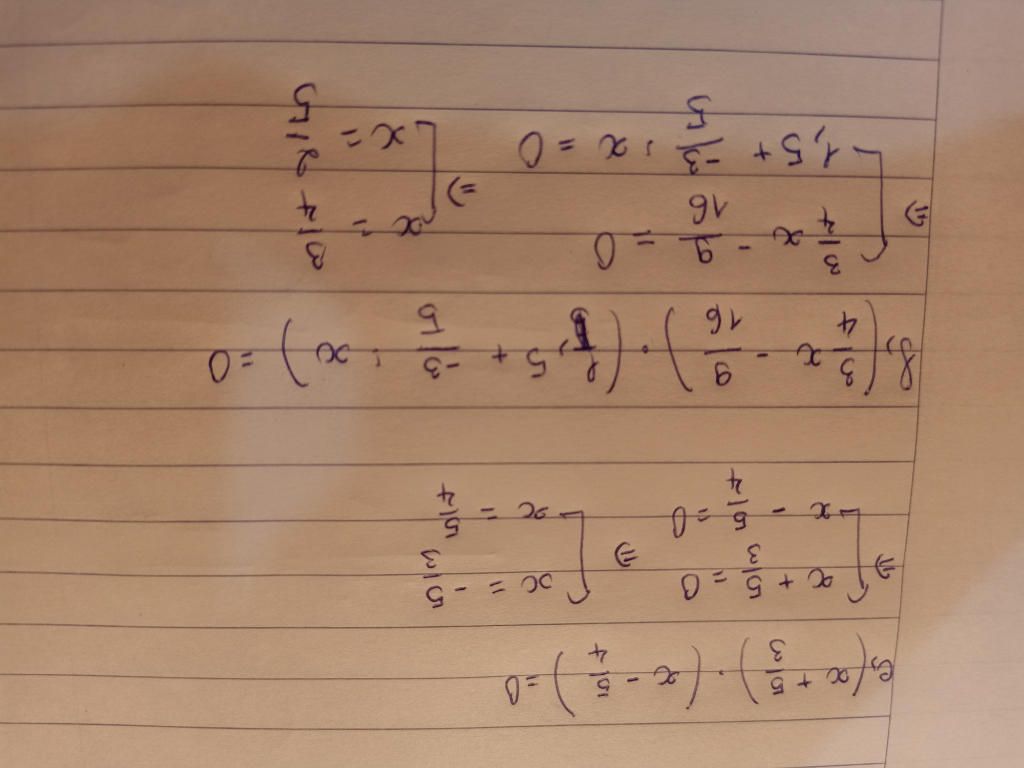 e, (x + 5/3) . (x - 5/4) = 0
⇒ [ x + 5/3 = 0 ⇒ [ x = -5/3
x - 5/4 = 0 x = 5/4
f, (3/4 x - 9/16) . (1,5 + -3/5 : x) = 0
⇒ [ 3/4 x - 9/16 = 0 ⇒ [ x = 3/4
1,5 + -3/5 : x = 0 x = 2/5